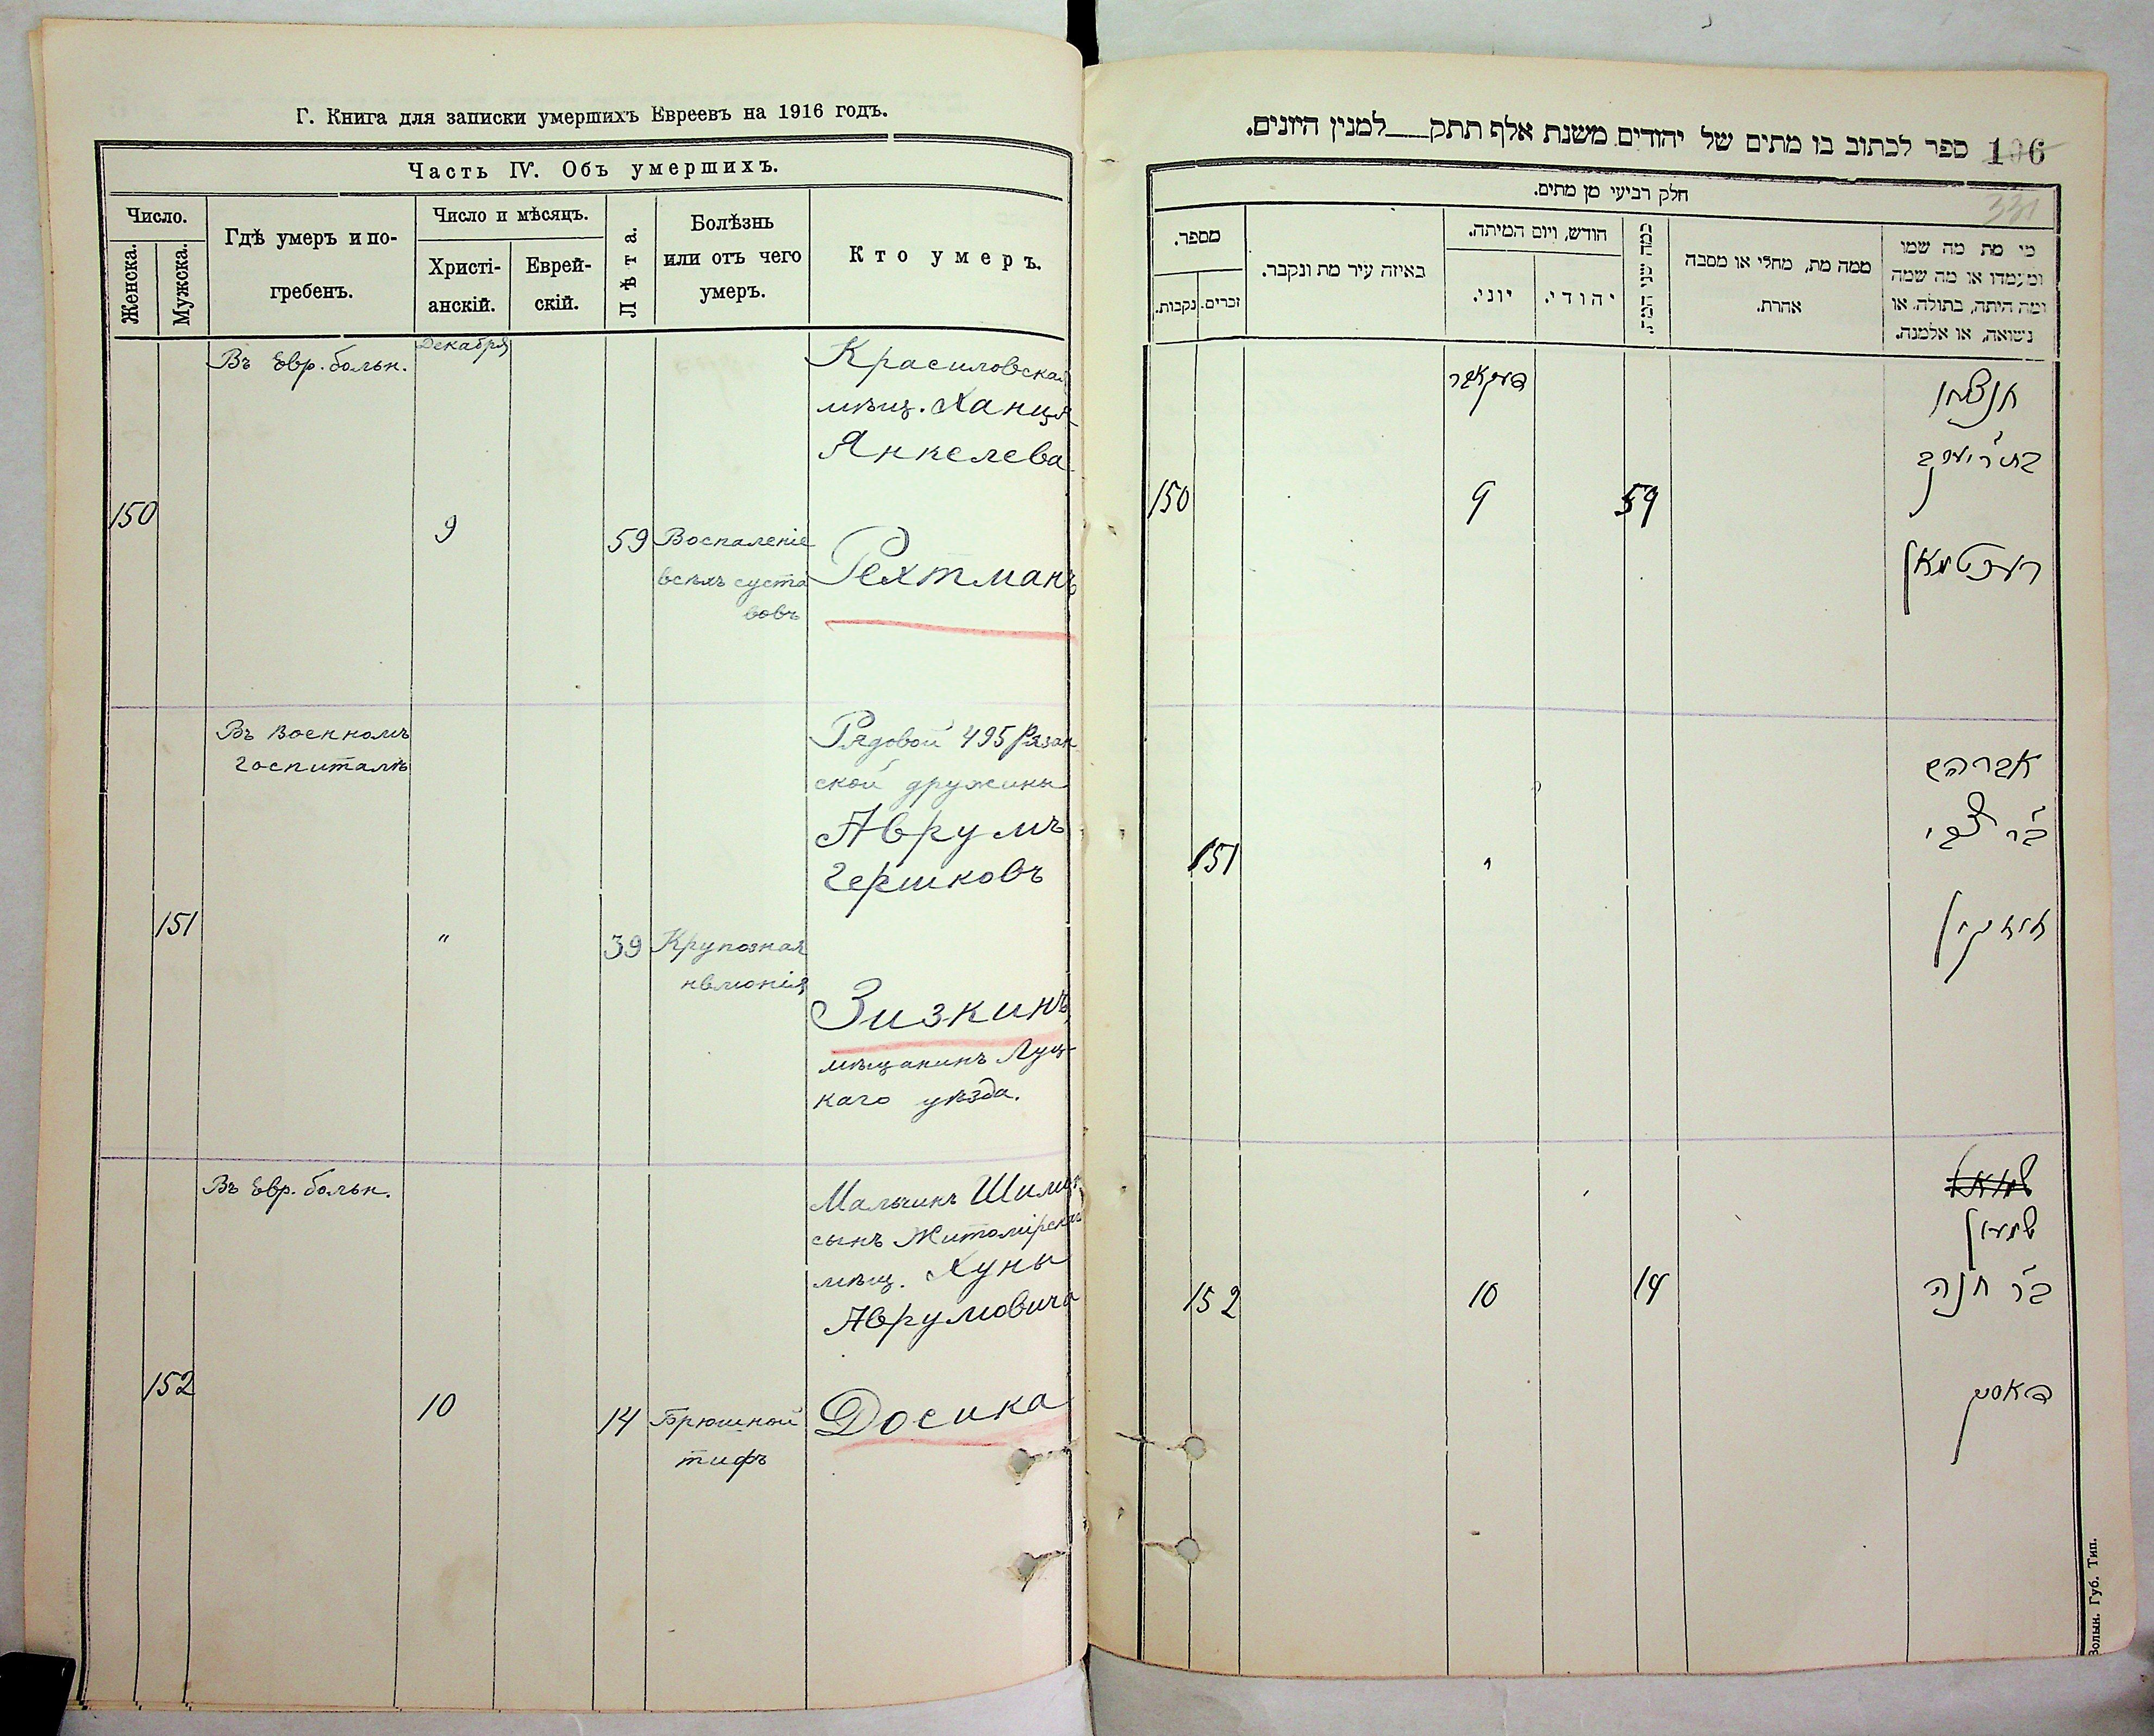 Г. Книга для записки умершихъ Евреевъ на 1916 годъ.
Часть IV. Объ умершихъ.
Число.
Женска.
Мужска.
Гдѣ умеръ и по-
гребенъ.
Число и мѣсяцъ.
Христі-
анскій.
Еврей-
скій.
Лѣта.
Болѣзнь
или отъ чего
умеръ.
Кто умеръ.
Въ Евр. больн.
Декабря
Красиловская
мѣщ. Ханця
Янкелева
150
9
59
Воспаленіе
всѣхъ суста
вовъ
Рехтманъ
Въ Военномъ
госпиталѣ
Рядовой 495 Рязан
ской дружины
Аврумъ
Гершковъ
151
"
39
Крупозная
пвмонія
Зизкинъ,
мѣщанинъ Луц-
каго уѣзда.
Въ Евр. больн.
Мальчикъ Шимон
сынъ Житомірскаго
мѣщ. Хуны
Аврумовича
152
10
14
Брюшной
тифъ
Досика
ספר לכתוב בו מתים של יהודים משנת אלף תתק למנין היונים.
106
331
חלק רביעי מן מתים.
מספר.
נקבות.
זכרים.
באיזה עיר מת ונקבר.
חודש, ויום המיתה.
יוני.
יהודי.
כמה שני המת.
ממה מת, מחלי או מסבה
אחרת.
מי מת מה שמו
ומעמדו או מה שמה
ומה היתה, בתולה, או
נשואה, או אלמנה.
דעקאבר
בת ר' יעקב
150
9
59
רעכטמאן
אברהם
ב"ר צבי
151
"
זיזקין
שמואל
שמעון
ב"ר חנה
152
10
14
דאסיק
Волын. Губ. Тип.